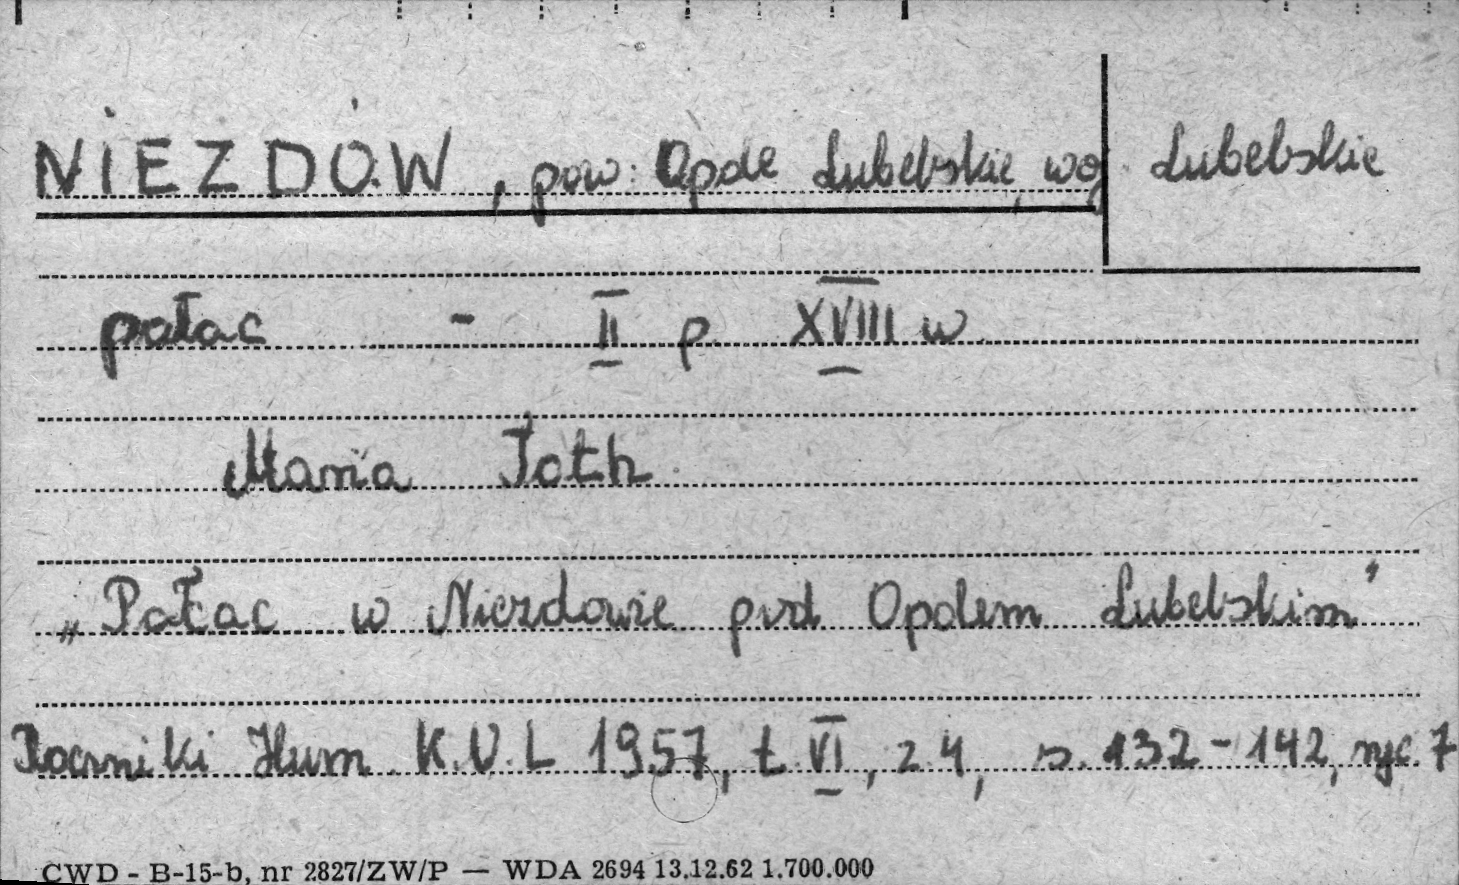 NIEZDÓW, pow: Opole Lubelskie, woj. Lubelskie
pałac - II p. XVIII w.
Maria Toth
„Pałac w Niezdowie pod Opolem Lubelskim"
Roczniki Hum. K.U.L 1957, t. VI, z 4, s. 132-142, ryc. 7
CWD - B-15-b, nr 2827/ZW/P — WDA 2694 13.12.62 1.700.000